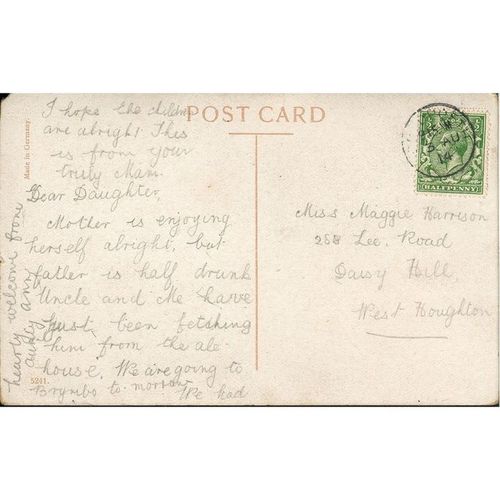 POST CARD
Made in Germany.
I hope the childre
are alright This
is from your
truly Mam.
Dear Daughter,
Mother is enjoying
herself alright, but
father is half drunk
Uncle and Me have
just been fetching
him from the ale-
house. We are going to
Brymbo to-morrow
We had
hearly welcome from
5241.
HALFPENNY
Miss Maggie Harrison
258 Lee. Road
Daisy Hill,
West Houghton